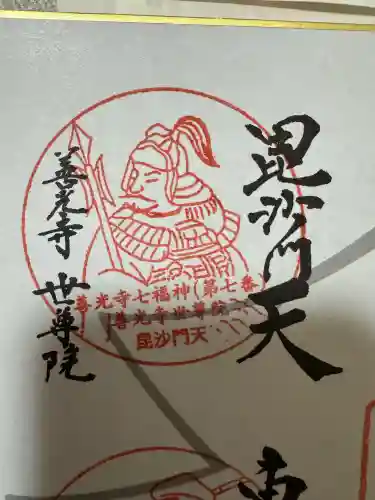 毘沙門天
善光寺 世尊院
善光寺七福神(第七番)
善光寺世尊院
毘沙門天